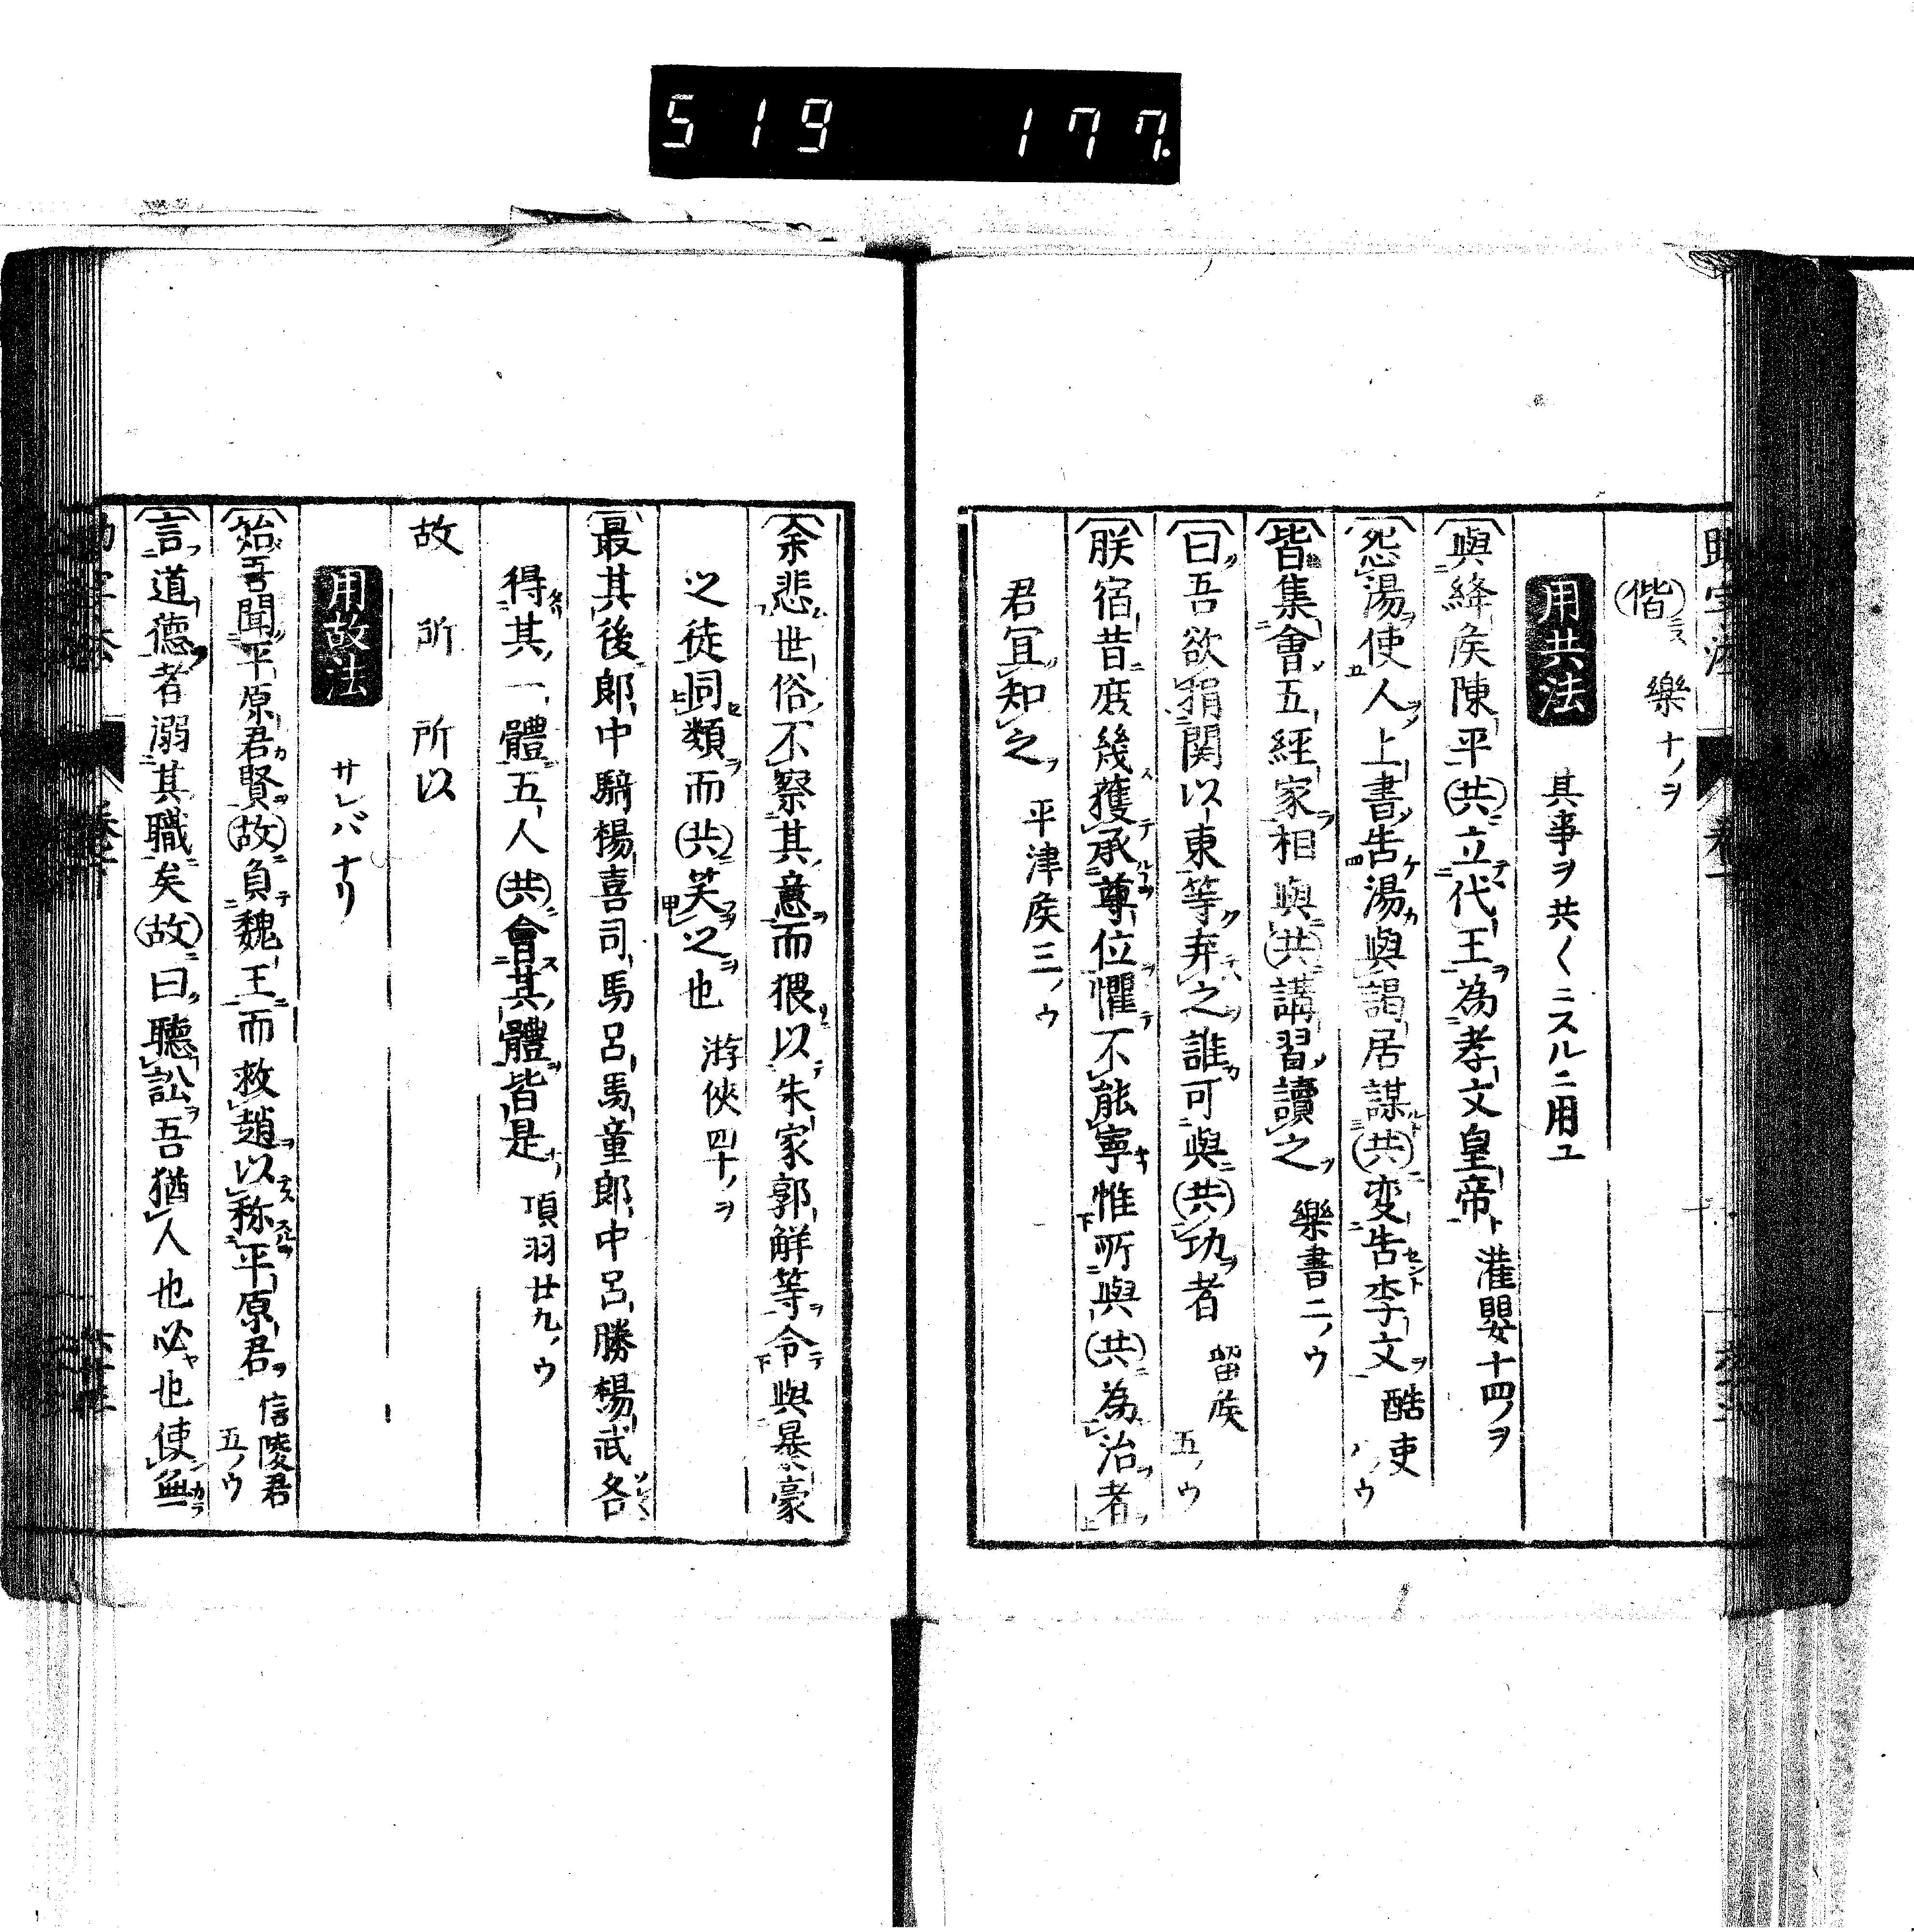 519 177.
偕 樂十ノヲ
用共法 其事ヲ共〱ニスルニ用ユ
與絳侯陳平共立代王為孝文皇帝 灌嬰十四ノヲ
怨湯使人上書告湯與謁居謀共変告李文 酷吏八ノウ
皆集會五經家相與共講習讀之 樂書二ノウ
曰吾欲捐関以東等弃之誰可與共功者 留侯五ノウ
朕宿昔庶幾獲承尊位懼不能寧惟所與共為治者
君冝知之 平津侯三ノウ
余悲世俗不察其意而猥以朱家郭解等令與暴豪
之徒同類而共笑之也 游俠四十ノヲ
最其後郎中騎楊喜司馬呂馬童郎中呂勝楊武各
得其一體五人共會其體皆是 項羽廿九ノウ
故 所 所以
用故法 サレバナリ
始吾聞平原君賢故負魏王而救趙以称平原君 信陵君五ノウ
言道德者溺其職矣故曰聽訟吾猶人也必也使無